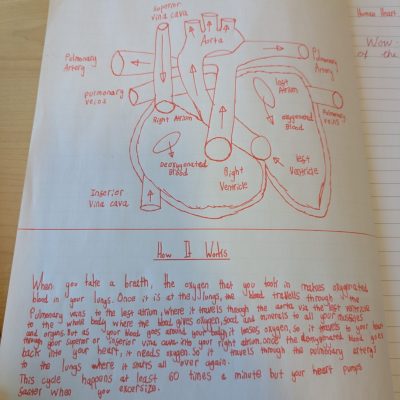 Superior
vina cava
Human Heart
Wow.
of the
Aorta
Pulmonary
Artery
Pulmonary
Artery
Pulmonary
veins
Lest
Atrium
oxygenated
Blood
Pulmonary
veins
Right Atrium
Deoxygenated
Blood
Right
Ventricle
Lest
Ventricle
Inserior
Vina cava
How It Works
When you take a breath, the oxygen that you took in makes oxygenated
blood in your lungs. Once it is at the lungs, the blood travells through the
Pulmonary vains to the lest atrium, where it travels through the aorta via the lest ventricle
to the whole body where the blood gives oxygen, food and minerals to all your muscles
and organs. But as your blood goes around your body it looses oxygen, so it travels to your heart
through your superior or inserior vina cava into your right atrium. once the deoxygenated blood goes
back into your heart, it needs oxygen. So it travels through the pulmonary arterys
to the lungs where it starts all over again.
This cycle happens at least 60 times a minute but your heart pumps
saster when you excersize.